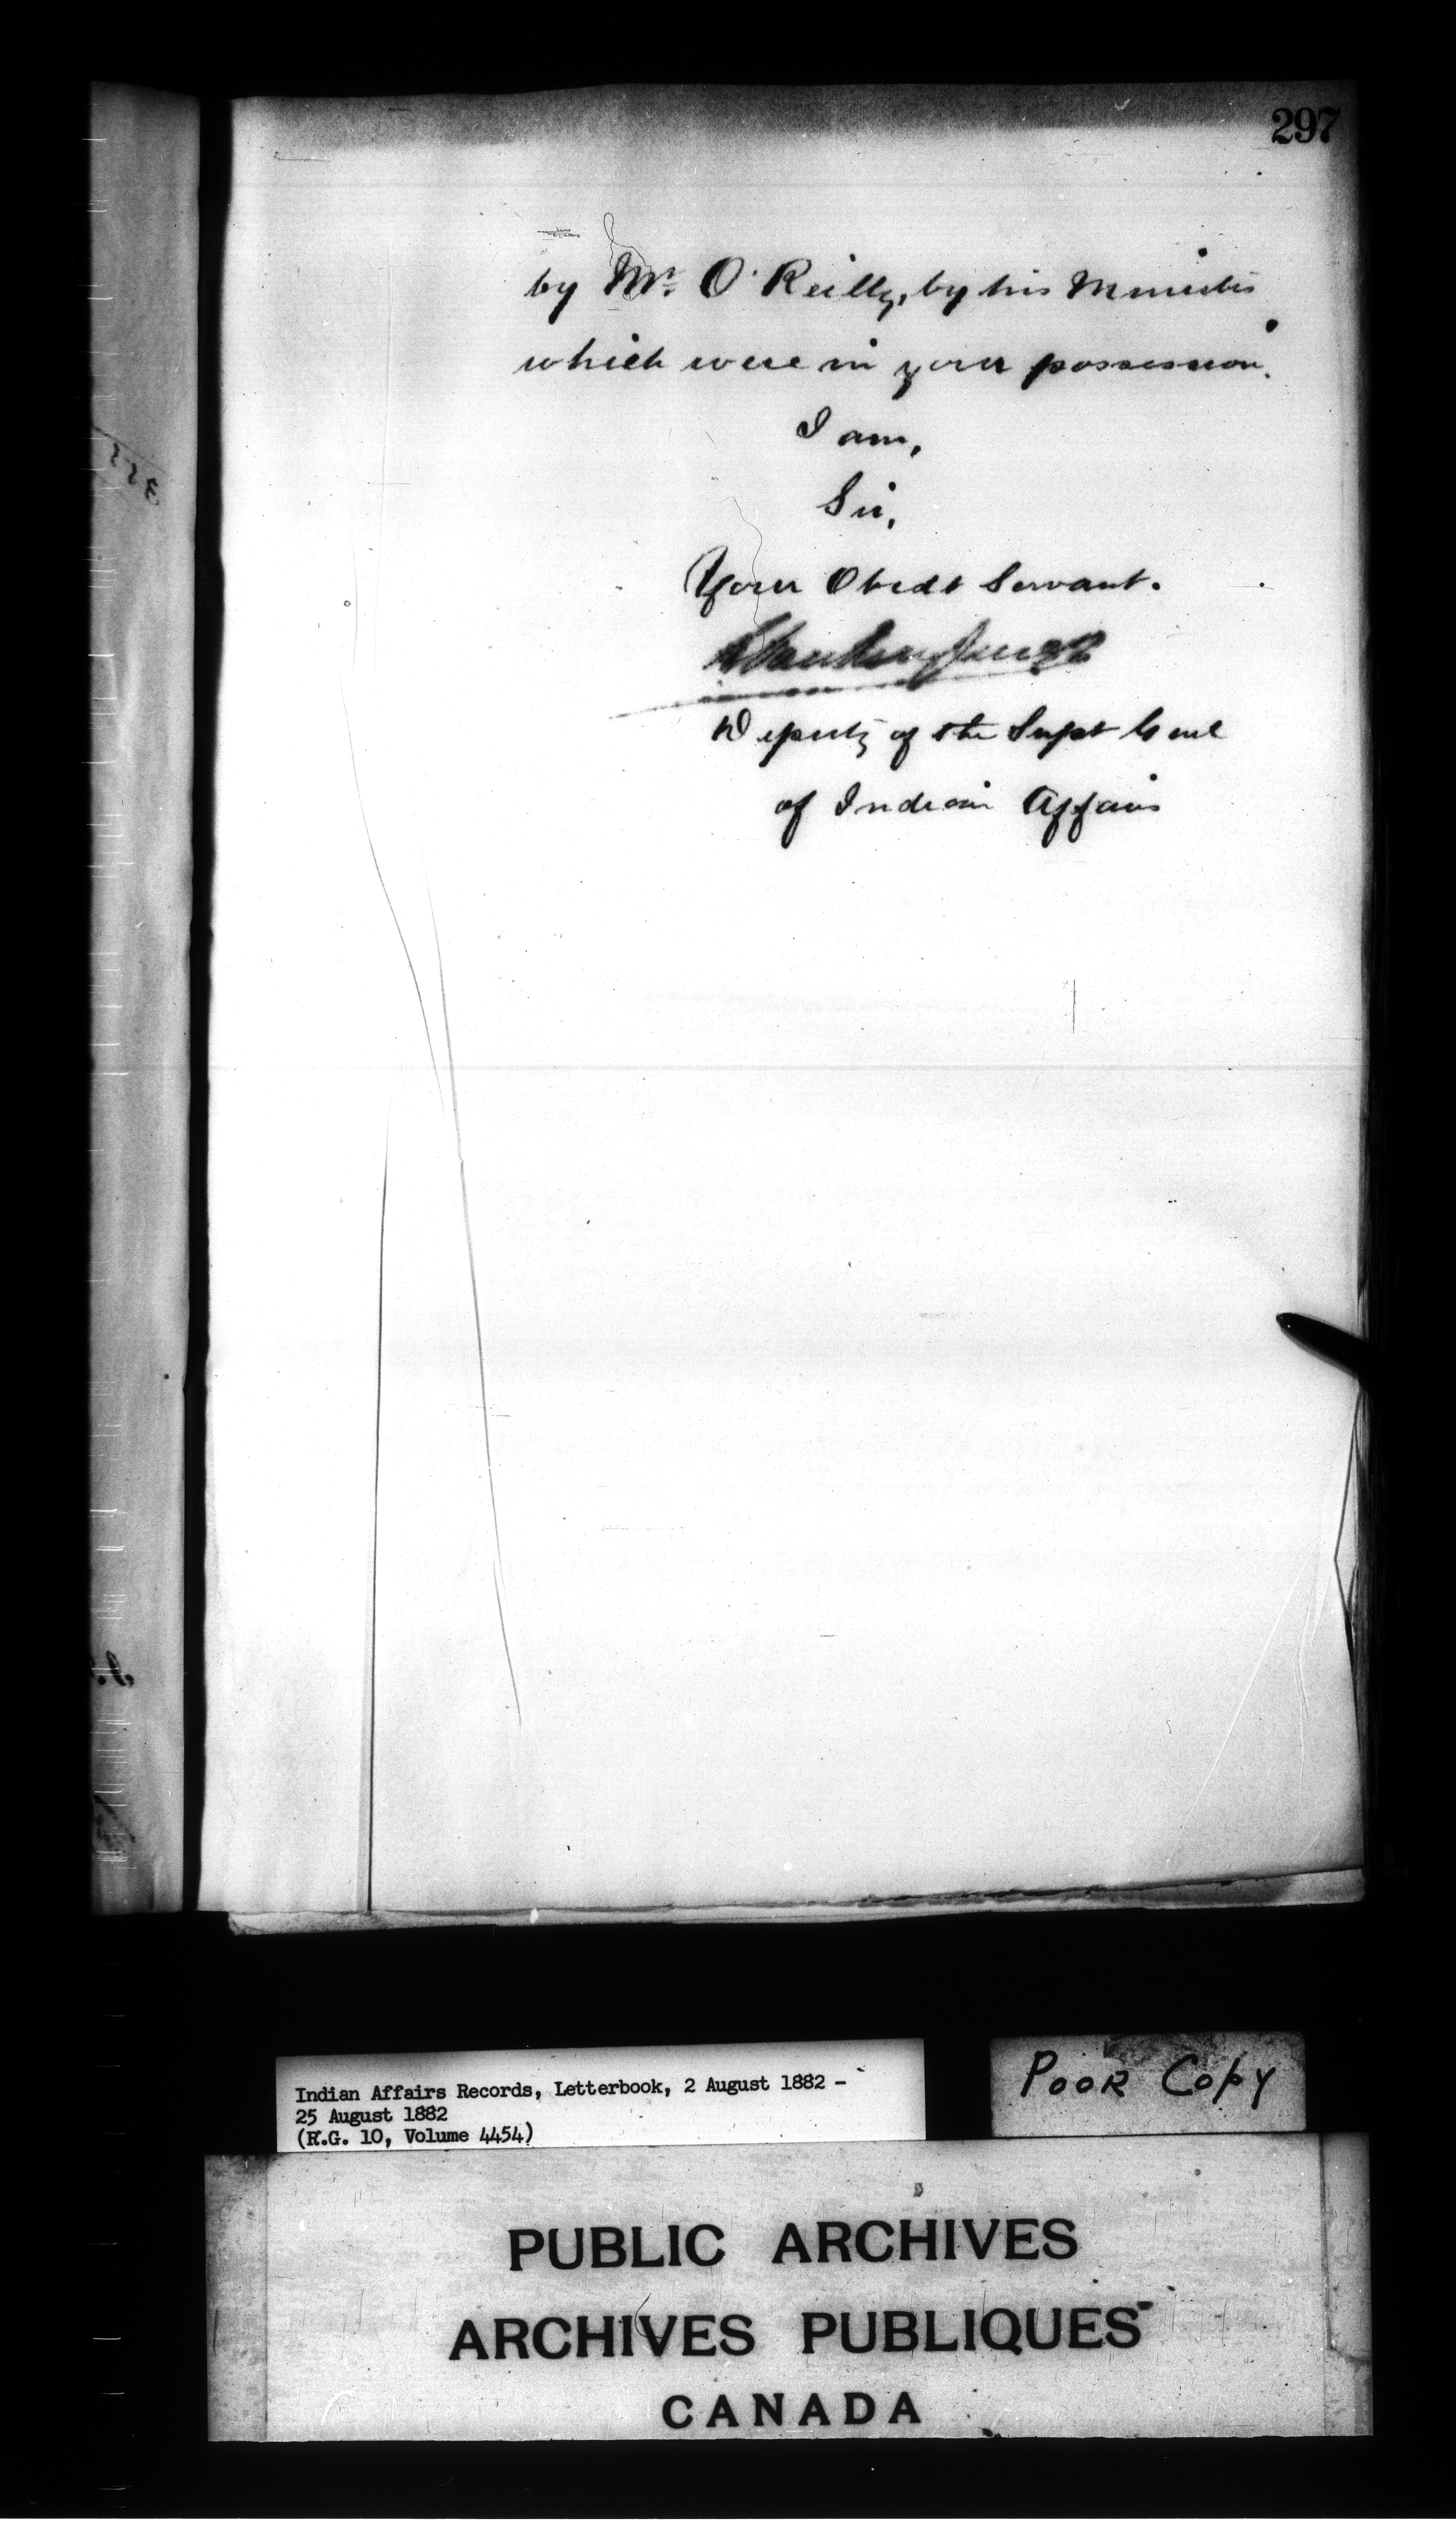 297
by Mr. O'Reilly, by his Minutes
which were in your possession.
I am,
Sir,
Your Obedt Servant.
Deputy of the Supt Genl
of Indian Affairs
Indian Affairs Records, Letterbook, 2 August 1882 -
25 August 1882
(R.G. 10, Volume 4454)
POOR COPY
PUBLIC ARCHIVES
ARCHIVES PUBLIQUES
CANADA